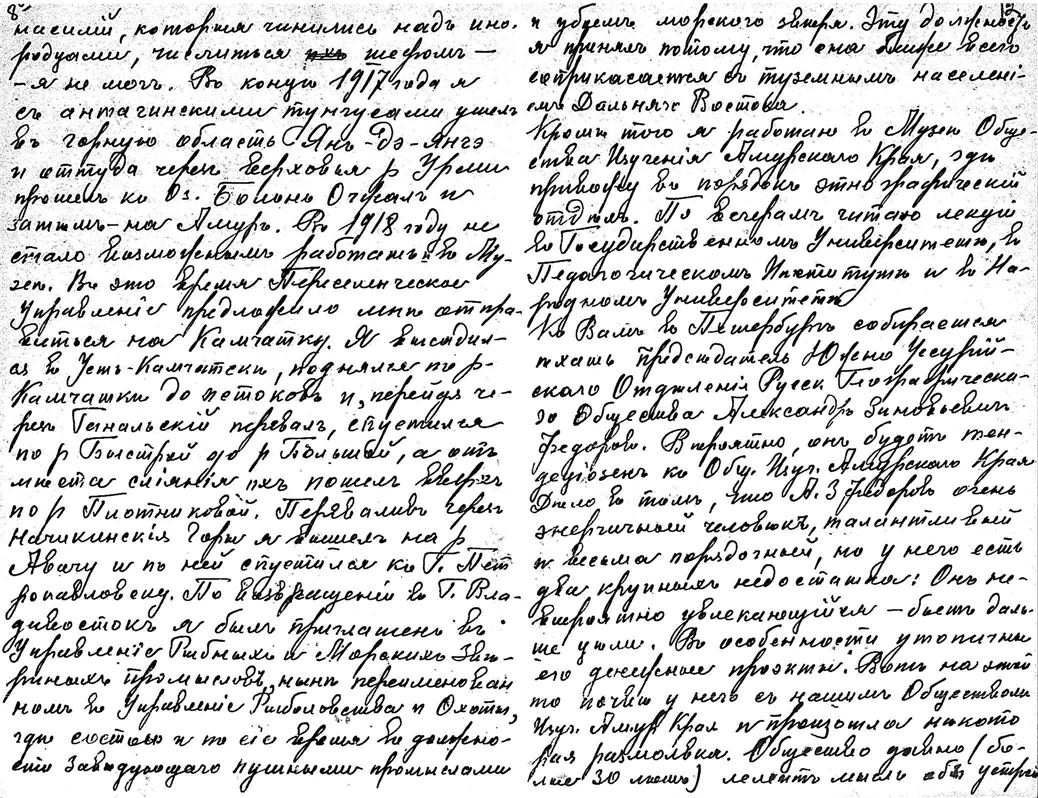 8
насилій, которыя чинились надъ ино-
родцами, числиться шефомъ —
— я не могъ. Въ концѣ 1917 года я
съ антагинскими тунгусами ушелъ
въ горную область Янъ-дэ-янгэ
и оттуда черезъ верховья р Урми
прошелъ къ Оз. Болонь Очжалъ и
затѣмъ — на Амуръ. Въ 1918 году не
стало возможнымъ работать въ Му-
зеѣ. Въ это время Переселенческое
Управленіе предложило мнѣ отпра-
виться на Камчатку. Я высадил-
ся въ Усть-Камчатскѣ, поднялся по р
Камчаткѣ до истоковъ и, перейдя че-
резъ Ганальскій перевалъ, спустился
по р Быстрой до р Большой, а отъ
мѣста сліянія ихъ пошелъ вверхъ
по р Плотниковой. Переваливъ черезъ
Начикинскія Горы я вышелъ на р
Авачу и по ней спустился къ Г. Пет
ропавловску. По возвращеніи въ Г. Вла-
дивостокъ я былъ приглашенъ въ
Управленіе Рыбныхъ и Морскихъ Звѣ-
риныхъ промысловъ, нынѣ переименован
номъ въ Управленіе Рыболовства и Охоты,
гдѣ состою и по сіе время въ должно-
сти Завѣдующаго пушными промыслами
и убоемъ морского звѣря. Эту должность
я принялъ потому, что она ближе всего
соприкасается съ туземнымъ населені-
емъ Дальняго Востока.
Кромѣ того я работаю въ Музеѣ Обще-
ства Изученія Амурскаго Края, гдѣ
привожу въ порядокъ этнографическій
отдѣлъ. По вечерамъ читаю лекціи
въ Государственномъ Университетѣ, въ
Педагогическомъ Институтѣ и въ На-
родномъ Университетѣ
Къ Вамъ въ Петербургъ собирается
ѣхать предсѣдатель Южно Уссурій-
скаго Отдѣленія Русск Географическа-
го Общества Александръ Зиновьевичъ
Федоровъ. Вѣроятно, онъ будетъ тен-
денціозенъ къ Общ. Изуч. Амурскаго Края
Дѣло въ томъ, что А. З Федоровъ очень
энергичный человѣкъ, талантливый
и весьма порядочный, но у него есть
два крупныхъ недостатка: Онъ не-
вѣроятно увлекающійся — бьетъ даль-
ше цѣли. Въ особенности утопичны
его денежные проэкты. Вотъ на этой
то почвѣ у него съ нашимъ Обществомъ
Изуч. Амур Края и произошла нѣкото
рая размолвка. Общество давно (бо-
лѣе 30 лѣтъ) лелѣетъ мысль объ устрой